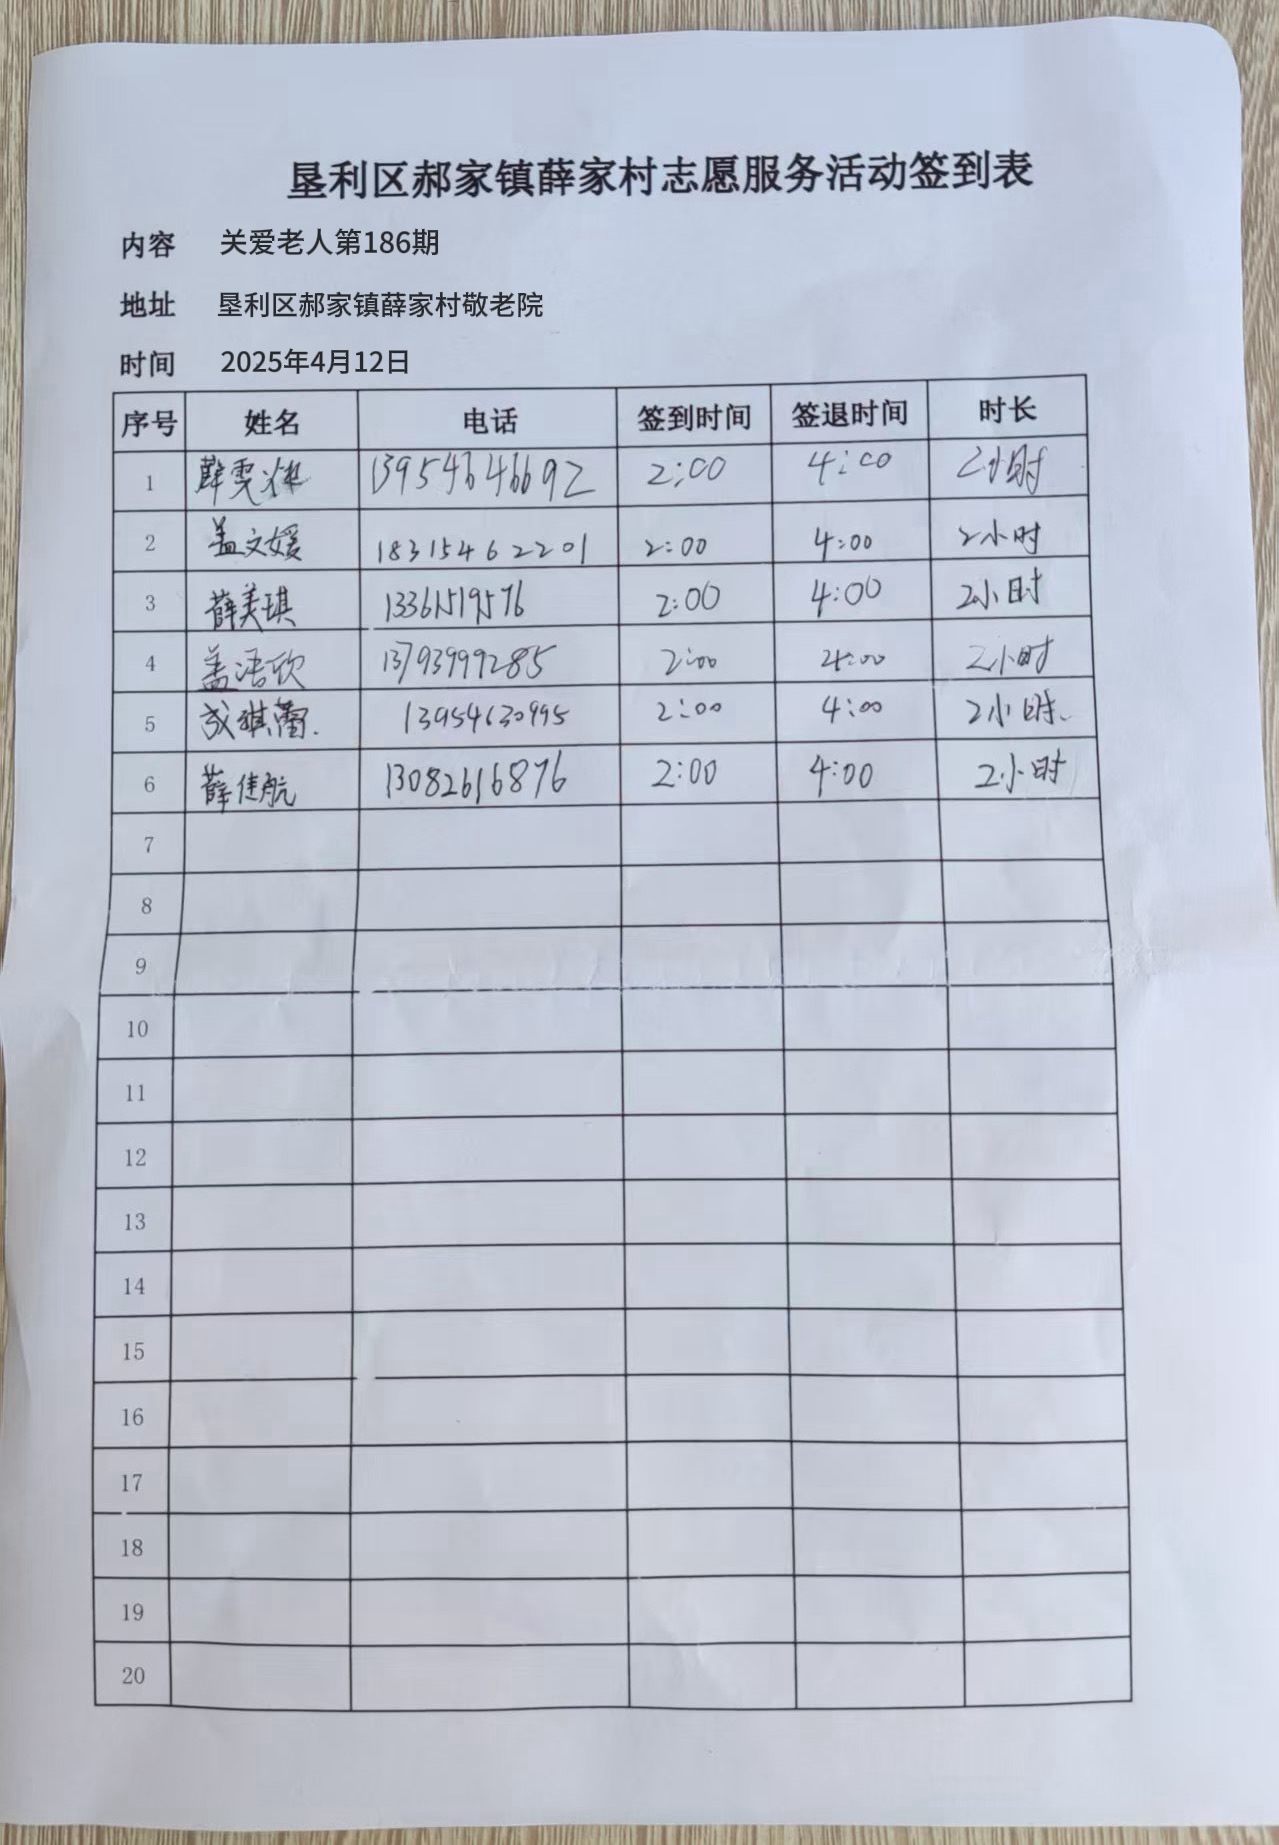 垦利区郝家镇薛家村志愿服务活动签到表
内容 关爱老人第186期
地址 垦利区郝家镇薛家村敬老院
时间 2025年4月12日
序号 姓名 电话 签到时间 签退时间 时长
1 薛雯 13954646692 2:00 4:00 2小时
2 盖文媛 18315462201 2:00 4:00 2小时
3 薛美琪 13361519576 2:00 4:00 2小时
4 盖浯欣 13793999285 2:00 4:00 2小时
5 成琪蕾. 13954630995 2:00 4:00 2小时.
6 薛佳航 13082616876 2:00 4:00 2小时
7
8
9
10
11
12
13
14
15
16
17
18
19
20